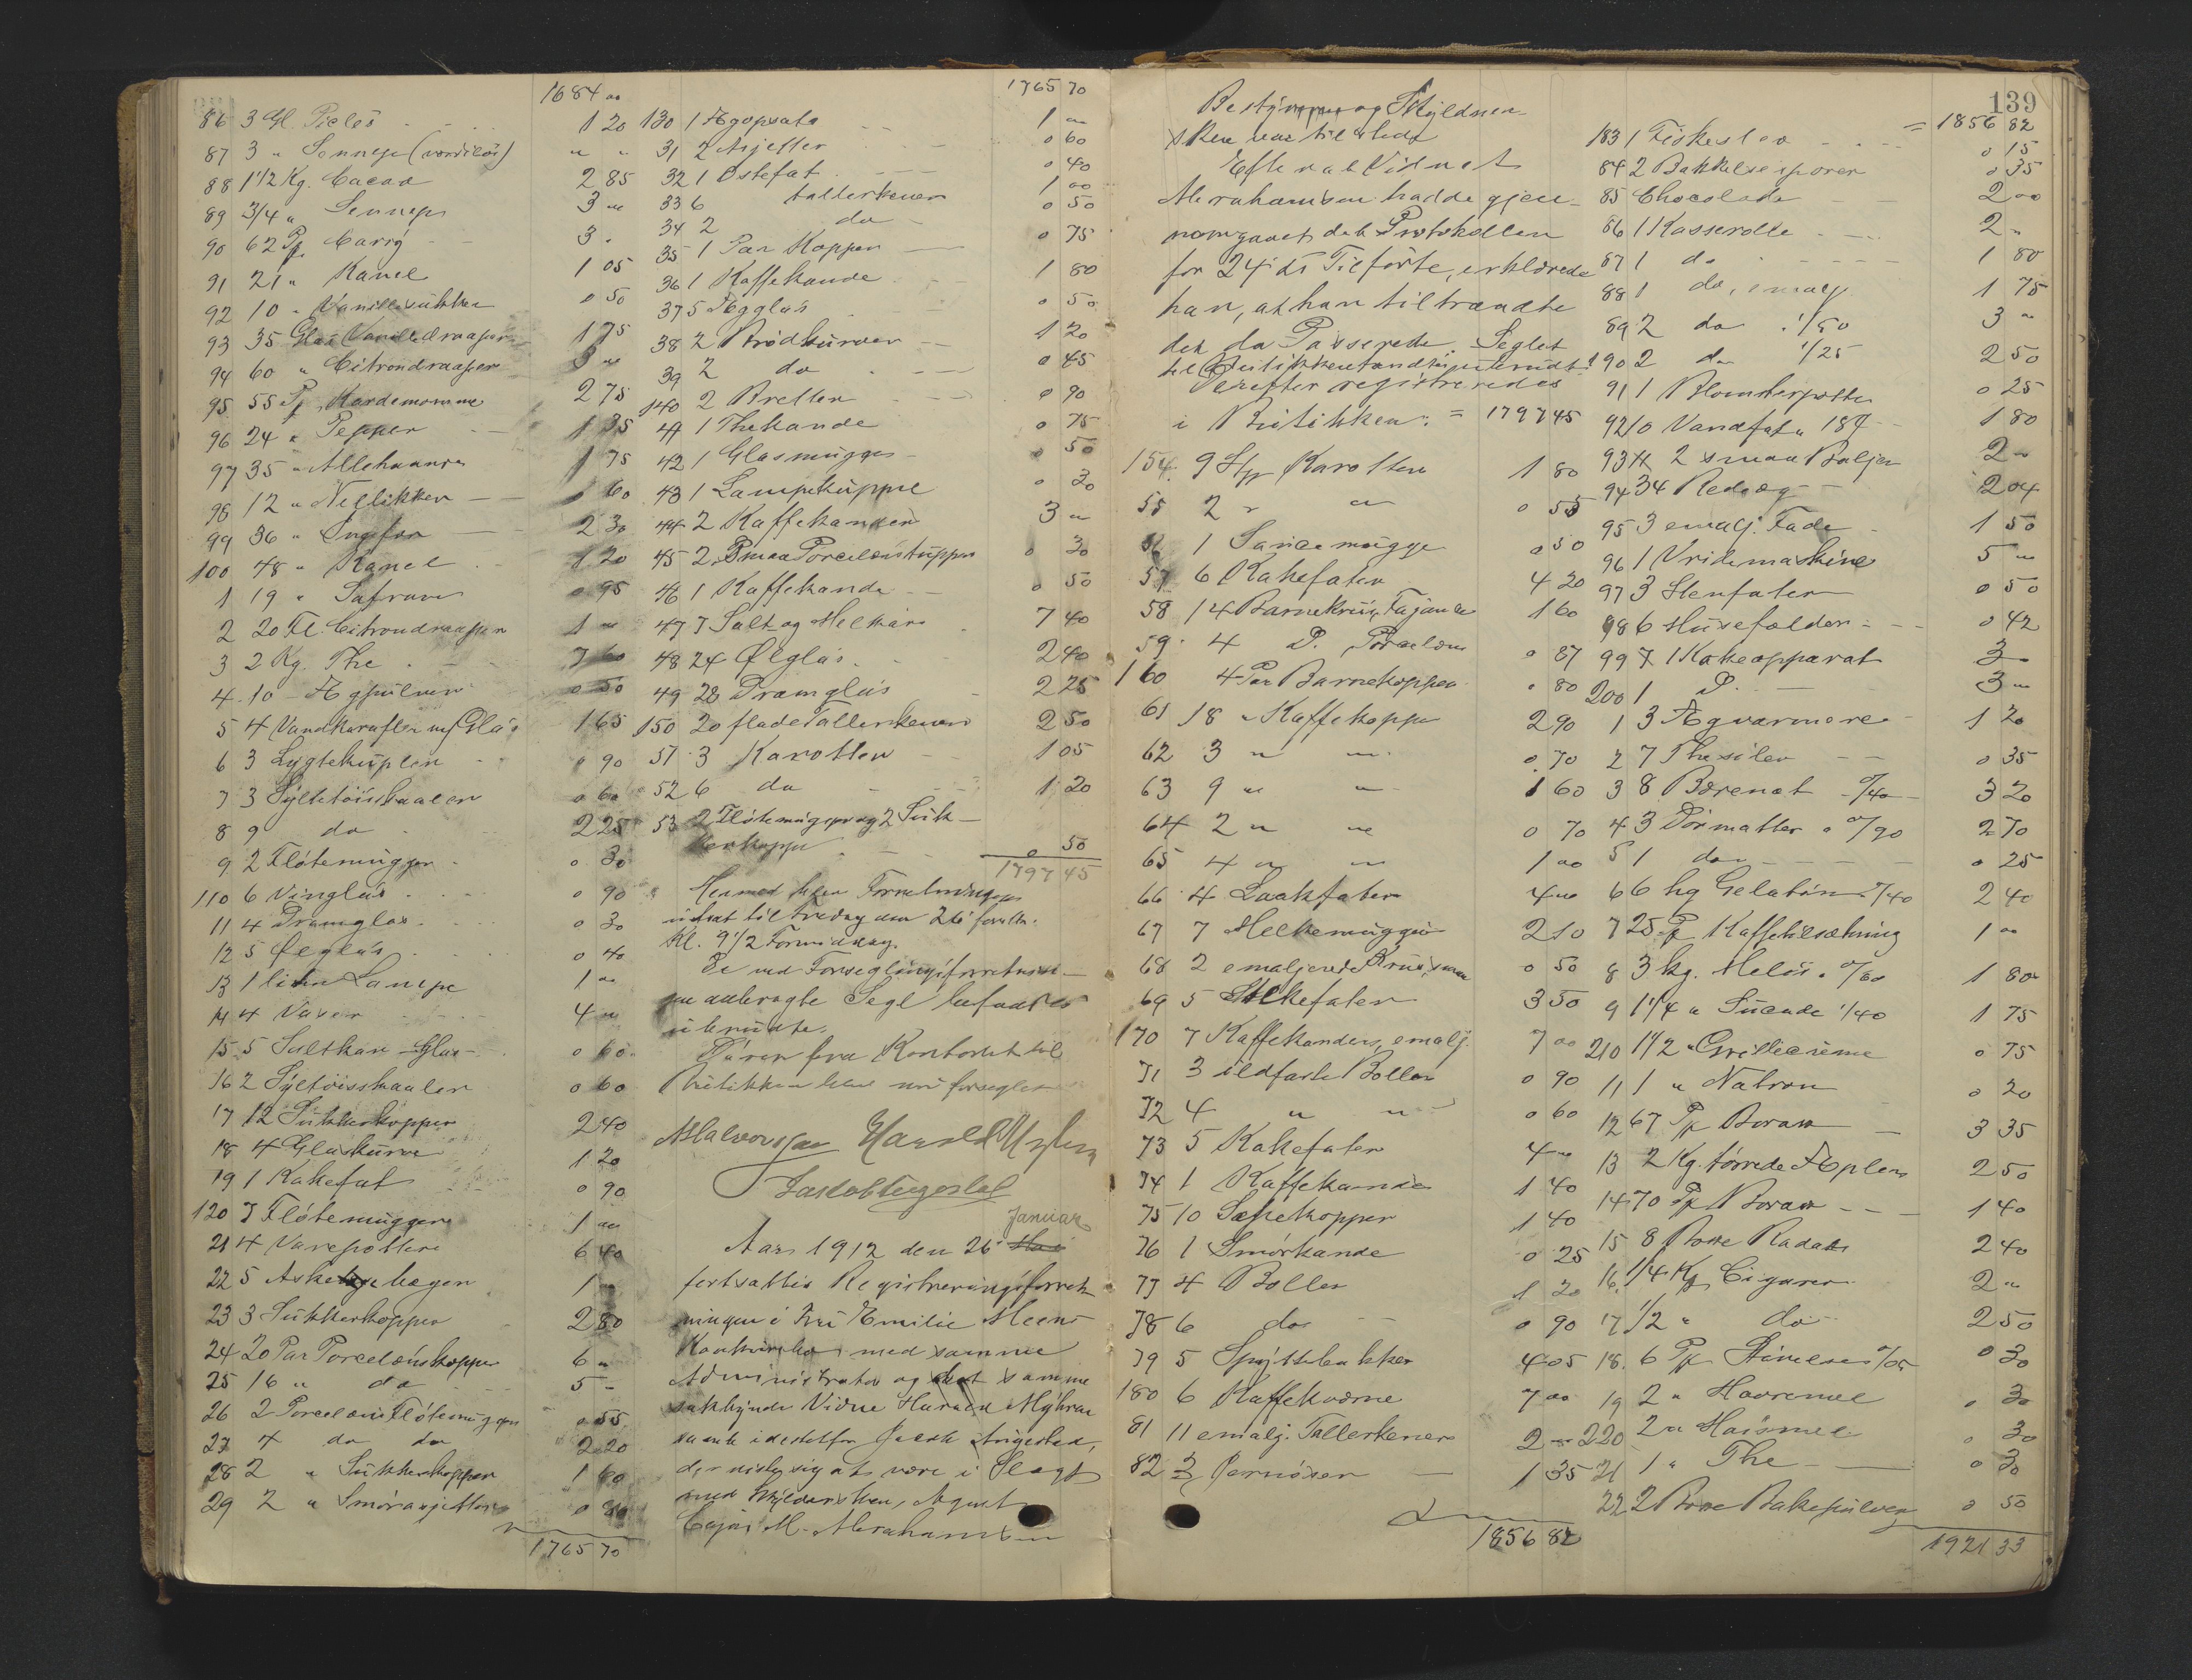 1684 "
86 3 Gl. Picles 1 20
87 3 " Sennep (værdiløs) " "
88 1 1/2 Kg. Cacao 2 85
89 3/4 " Sennep 3 "
90 62 Pk. Carry 3 "
91 21 " Kanel 1 05
92 10 " Vanillesukker 0 50
93 35 Glas Vanilledraaper 1 75
94 60 " Citrondraaper 3 "
95 55 Pk Kardemomme 2 75
96 24 " Pepper 1 35
97 35 " Allehaande 1 75
98 12 " Nellikker 60
99 36 " Ingefær 2 30
100 48 " Kanel 1 20
1 19 " Safran 0 95
2 20 Fl. Citrondraaper 1 "
3 2 Kg. The 7 60
4 10 - Ægpulver 0 50
5 4 Vandkarafler m/ Glas 1 65
6 3 Lygtekupler 0 90
7 3 Syltetöisskaaler 0 60
8 9 do 2 25
9 2 Flötemugger 0 30
110 6 Vinglas 0 90
11 4 Dramglas 0 30
12 5 Ølglas 0 40
13 1 liten Lampe 1 "
14 4 Vaser 4 "
15 5 Saltkar - Glas 0 60
16 2 Syltöisskaaler 0 60
17 12 Sukkerkopper 2 40
18 4 Glaskurve 1 20
19 1 Kakefat 0 90
120 7 Flötemugger 1 "
21 4 Varepotter 6 40
22 5 Askebæger 1 "
23 3 Sukkerkopper 2 80
24 20 Par Porcelænskopper 6 "
25 16 " do 5 "
26 2 Porcelæns Flötemugger 0 55
27 7 do do 2 20
28 2 " Sukkerkopper 1 60
29 2 " Smörasjetter 0 80
1765 70
1765 70
130 1 Ægopsats 1 "
31 2 Asjetter 0 60
32 1 Ostefat 0 40
33 6 tallerkener 1 00
34 2 do 0 50
35 1 Par Kopper 0 75
36 1 Kaffekande 1 80
37 5 Ægglas 0 50
38 2 Brödkurver 1 20
39 2 do 0 45
140 2 Bretter 0 90
41 1 Thekande 0 75
42 1 Glasmugge 0 50
43 1 Lampekuppel 0 30
44 2 Kaffekander 3 "
45 2 Smaa Porcelænskupper 0 30
46 1 Kaffekande 0 50
47 7 Salt og Melkar 7 40
48 24 Ølglas 2 40
49 28 Dramglas 2 25
150 20 flade Tallerkener 2 50
51 3 Karotter 1 05
52 6 do 1 20
53 2 Flötemugger og 2 Suk-
kerkopper 0 50
1797 45
Hermed blev Forretningen
udsat til Fredag den 26' ds
Kl. 9 1/2 Formiddag.
De ved Forseglingsforretnin-
gen anbragte Segl befandtes
ubrudte.
Dören fra Kontoret til
Butikken blev nu forseglet
Halvorsen Harald Myhren
Jakob
Januar
Aar 1912 den 26'
fortsattes Registreringsforret-
ningen i Fru Emilie Meens
Konkursbo med samme
Administrator og samme
sakkyndie Vidne Harald Myhren
samt istedetfor Jacob
der viste sig at være i Slægt
med Skyldnersken, Agent
Cajus M. Abrahamsen
Bestyreren og Skyldner-
sken var tilstede
Efterat Vidnet
Abrahamsen hadde gjen-
nomgaaet det Protokollen
for 24' ds Tilförte, erklærede
han, at han tiltraadte
det da Passerede. Seglet
til Butikken fandtes ubrudt.
Derefter registreredes
i Butikken: = 1797 45
154 9 Stk Karotter 1 80
55 2 " " 0 55
56 1 Saucemugge 0 50
57 6 Kakefater 4 20
58 14 Barnekrus, Fajance 1 60
59 4 D. Porcelæn 0 87
160 4 Par Barnekopper 0 80
61 18 " Kaffekopper 2 90
62 3 " " 0 70
63 9 " " 1 60
64 2 " " 0 70
65 4 " " 1 00
66 4 Laakfater 4 00
67 7 Melkemugger 2 10
68 2 emaljerede Krus, smaa 0 50
69 5 Stekefater 3 50
170 7 Kaffekander, emalj. 7 00
71 3 ildfaste Boller 0 90
72 4 " " 0 60
73 5 Kakefater 4 00
74 1 Kaffekande 1 40
75 10 Sæpekopper 1 40
76 1 Smörkande 0 25
77 4 Boller 1 20
78 6 do 0 90
79 5 Spyttebakker 4 05
180 6 Kaffekværne 7 00
81 11 emalj. Tallerkener 2 "
82 3 1 35
1856 82
139
= 1856 82
183 1 Fiskeslev 0 15
84 2 Bakkelsesporer 0 35
85 Chocolade 2 00
86 1 Kasserolle 2 "
87 1 do 1 80
88 1 do, emalj 1 75
89 2 do 1/50 3 "
190 2 do 1/25 2 50
91 1 Blomsterpotte 0 25
92 10 Vandfat a 18 1 80
93 2 smaa Baljer 2 "
94 34 Redeæg 2 04
95 3 emalj. Fade 1 50
96 1 Vridemaskine 5 "
97 3 Stenfater 0 50
98 6 Musefælder 0 42
99 1 Kokeapparat 3 "
200 1 D. 3 "
1 3 Ægvarmere 1 20
2 7 Thesiler 0 35
3 8 Bærenet 0/40 3 20
4 3 Dörmatter a 0/90 2 70
5 1 do 0 25
6 6 hg Gelatin 0/40 2 40
7 25 Pk Kaffetilsætning 1 00
8 3 kg. Melis 0/60 1 80
9 1 1/4 " Sucade 1/40 1 75
210 1 1/2 " Grillicreme 0 75
11 1 " Natron 0 20
12 67 Pk Borax 3 35
13 2 Kg. törrede Æpler 2 50
14 70 Pk Borax 1 40
15 8 2 40
16 1/4 Ks Cigarer 2 "
17 1/2 " do 2 50
18 6 Pk Stivelse 0/05 0 30
19 2 " Havremel 0 30
220 2 " Maismel 0 30
21 1 " The 0 30
22 2 Bakepulver 0 50
1921 33